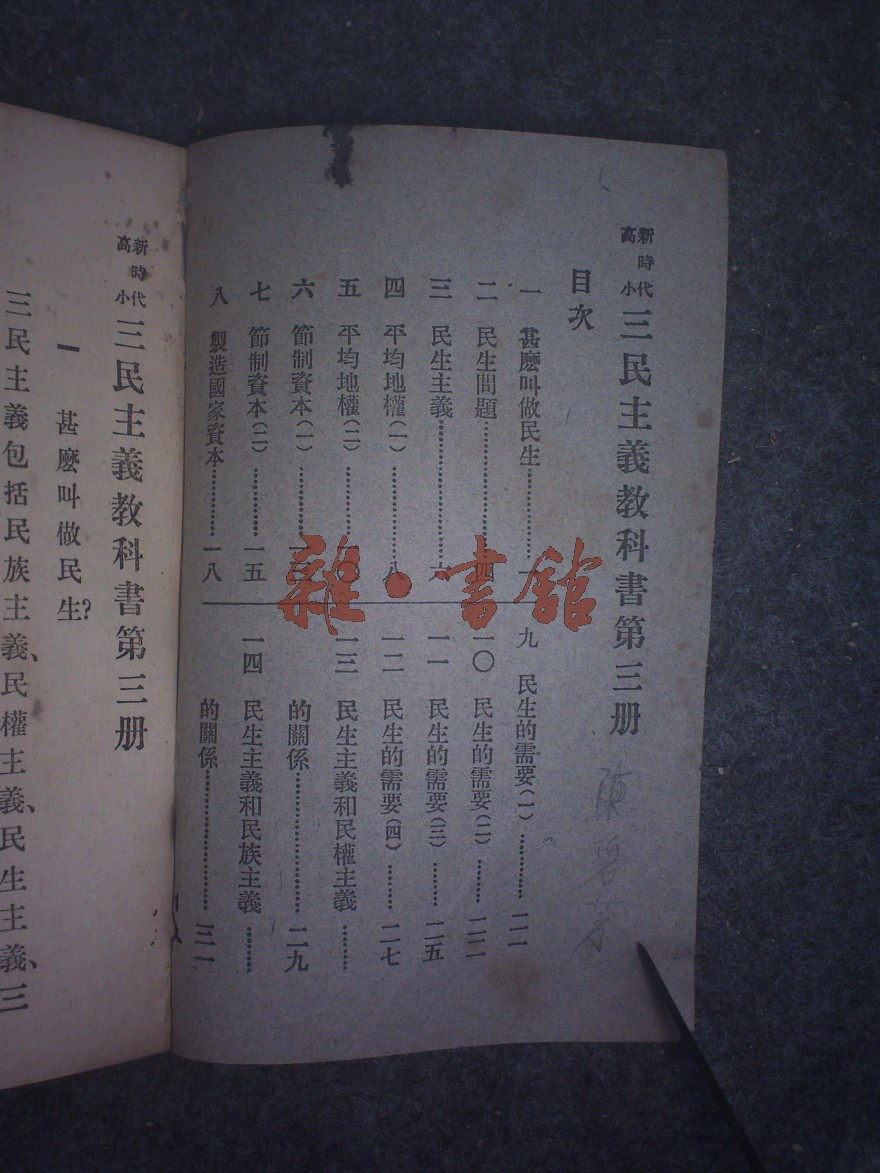 新時代
高小
三民主義教科書第三册
目次
一 甚麽叫做民生…………一
二 民生問題…………四
三 民生主義…………六
四 平均地權(一)…………八
五 平均地權(二)…………一〇
六 節制資本(一)…………
七 節制資本(二)…………一五
八 製造國家資本…………一八
九 民生的需要(一)…………二一
一〇 民生的需要(二)…………二二
一一 民生的需要(三)…………二五
一二 民生的需要(四)…………二七
一三 民生主義和民權主義
的關係…………二九
一四 民生主義和民族主義
的關係…………三一
雜·書館
新時代
高小
三民主義教科書第三册
一 甚麽叫做民生?
三民主義包括民族主義、民權主義、民生主義、三